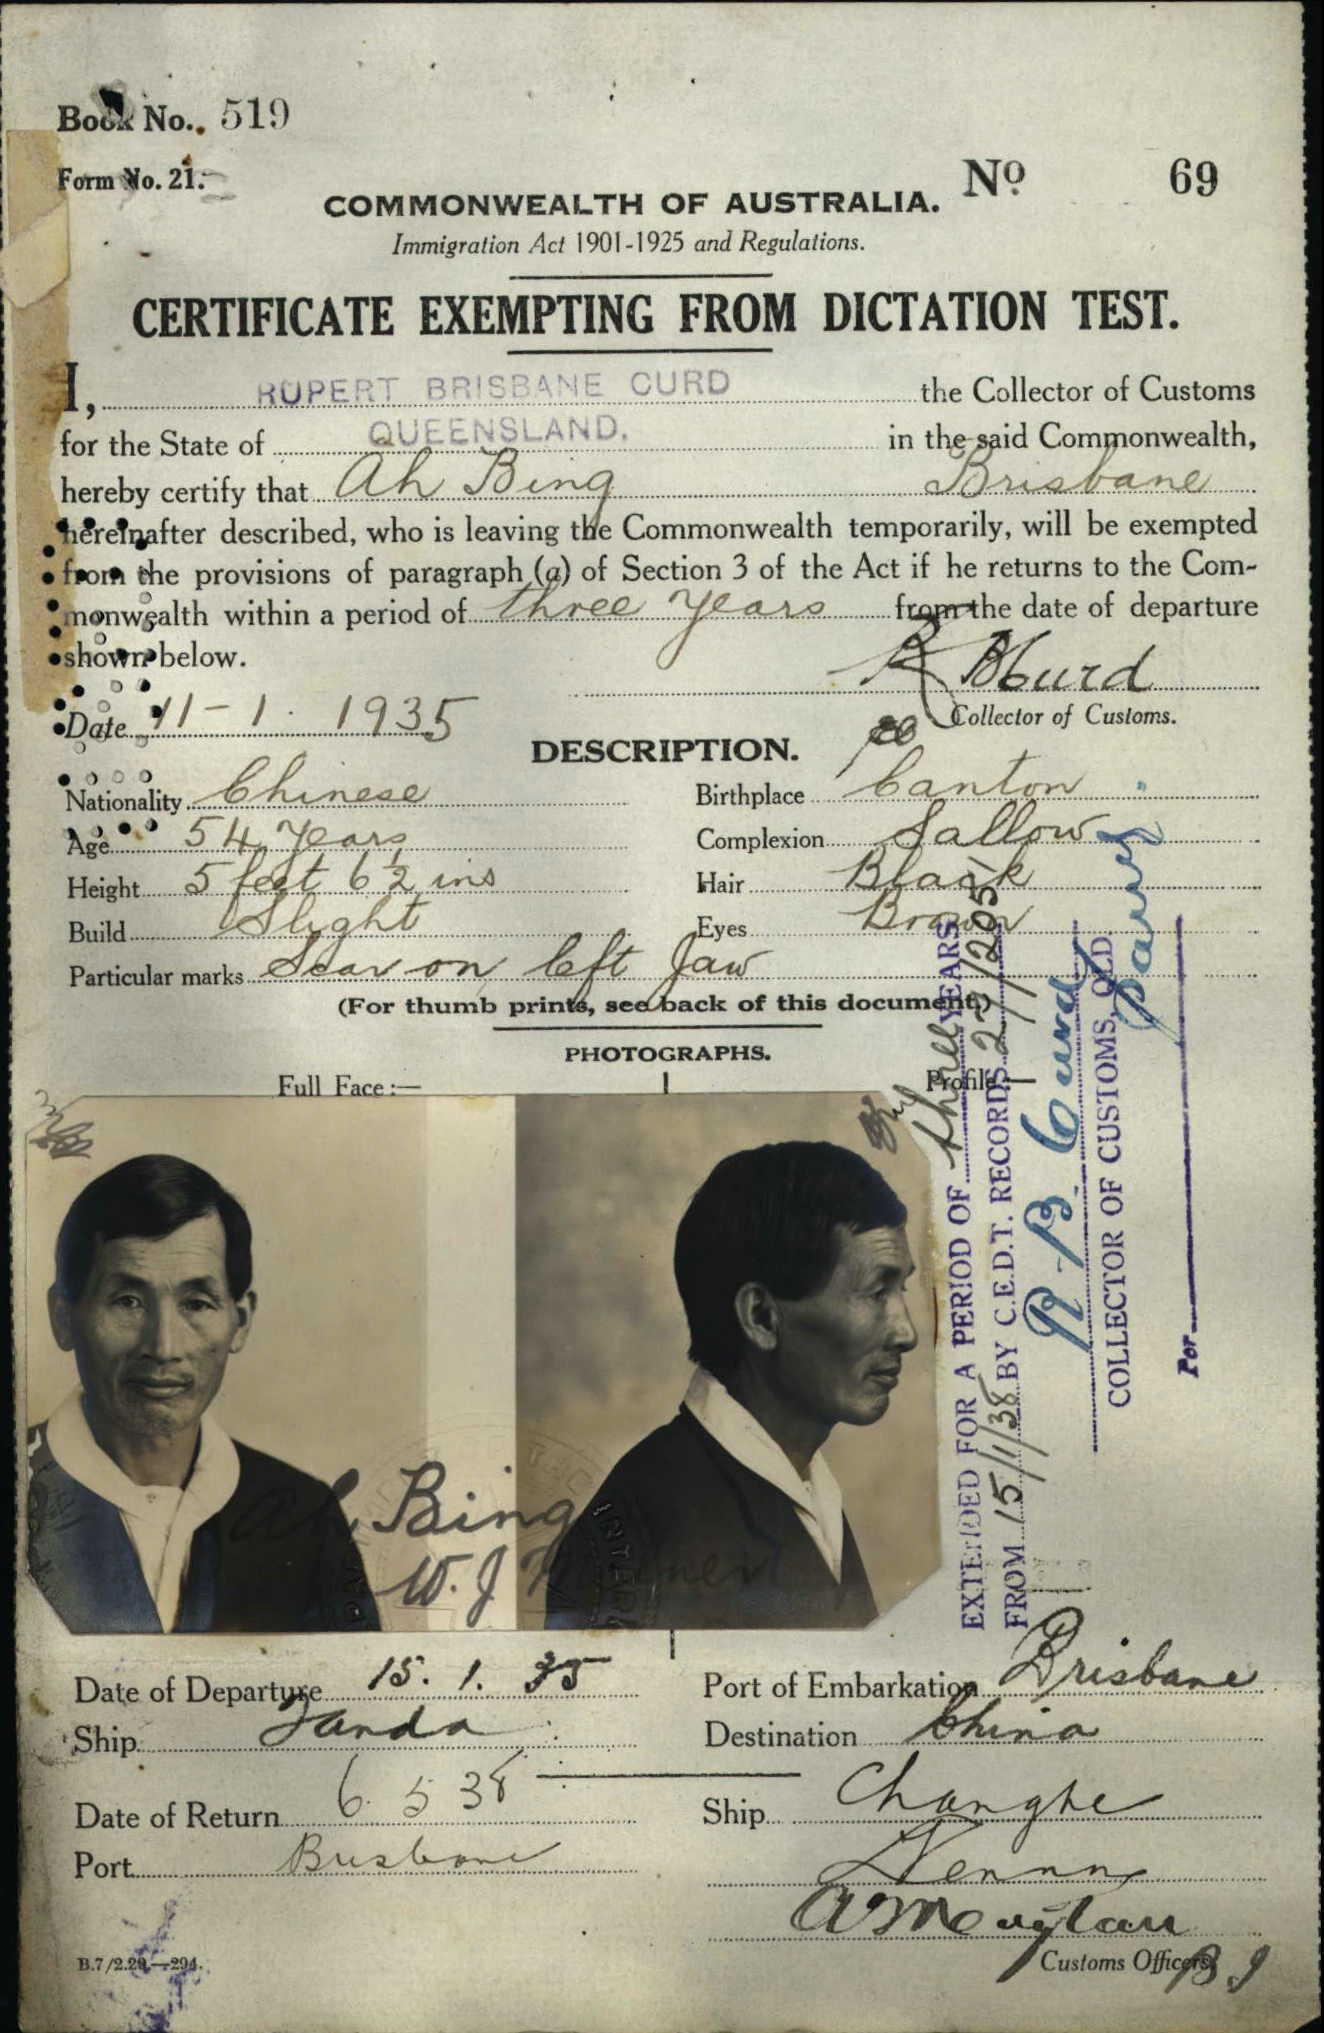 Book No. 519
Form No. 21.
No 69
COMMONWEALTH OF AUSTRALIA.
Immigration Act 1901-1925 and Regulations.
CERTIFICATE EXEMPTING FROM DICTATION TEST.
I, RUPERT BRISBANE CURD the Collector of Customs
for the State of QUEENSLAND. in the said Commonwealth,
hereby certify that Ah Bing Brisbane
hereinafter described, who is leaving the Commonwealth temporarily, will be exempted
from the provisions of paragraph (a) of Section 3 of the Act if he returns to the Com-
monwealth within a period of three years from the date of departure
shown below.
R B Curd
Date 11-1. 1935
Collector of Customs.
DESCRIPTION.
Nationality Chinese
Birthplace Canton
Age 54 years
Complexion Sallow
Height 5 feet 6½ ins
Hair Black
Build Slight
Eyes Brown
Particular marks Scar on left Jaw
(For thumb prints, see back of this document.)
PHOTOGRAPHS.
Full Face:—
Profile:—
Ah Bing
W. J.
EXTENDED FOR A PERIOD OF three YEARS
FROM 15/1/38 BY C.E.D.T. RECORDS 37/1205
R. B. Curd
COLLECTOR OF CUSTOMS, QLD.
Per
Date of Departure 15. 1. 35
Port of Embarkation Brisbane
Ship Tanda
Destination China
Date of Return 6 5 38
Ship Changte
Port Brisbane
B.7/2.29.—294.
Customs Officers